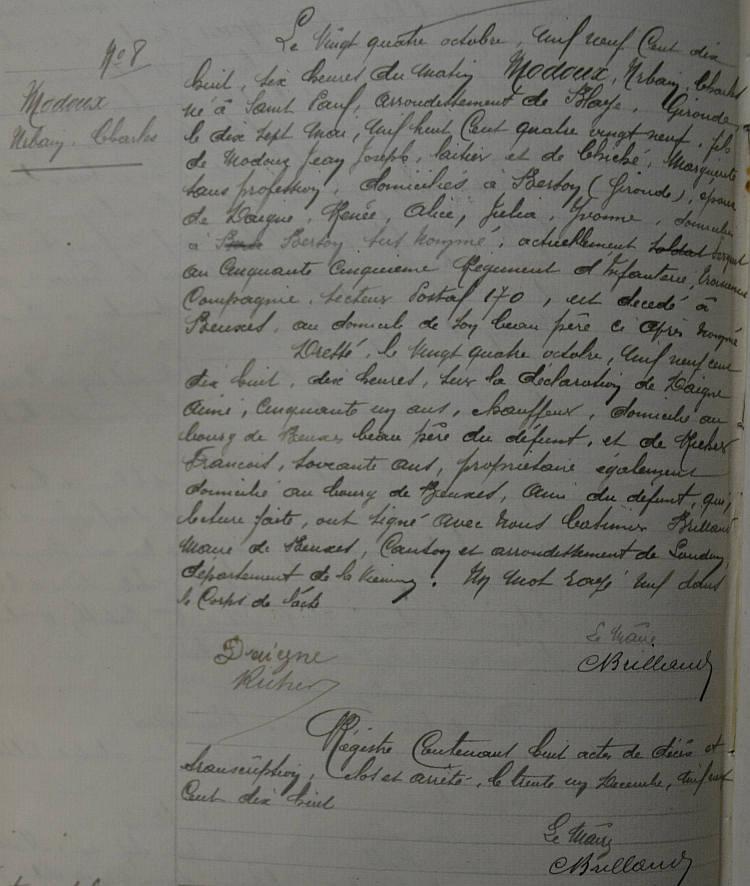 No 8
Modoux
Urbain, Charles
Le vingt quatre octobre, mil neuf cent dix
huit, six heures du matin Modoux, Urbain, Charles
né à Saint Paul, arrondissement de Blaye, Gironde,
le dix sept mai, mil huit cent quatre vingt neuf, fils
de Modoux Jean Joseph, laitier et de Chiché, Marguerite
sans profession, domiciliés à Berson (Gironde), époux
de Daigne, Renée, Alice, Julia, Yvonne, domicilié
à Berson sus nommé, actuellement soldat sergent
au cinquante cinquième Régiment d'Infanterie, troisième
Compagnie, secteur Postal 170, est décédé à
Beuxes, au domicile de son beau père ci après nommé
Dressé, le vingt quatre octobre, mil neuf cent
dix huit, dix heures, sur la déclaration de Daigne
Aimé, cinquante un ans, chauffeur, domicilié au
bourg de Beuxes beau père du défunt, et de Richer
François, soixante ans, propriétaire également
domicilié au bourg de Beuxes, ami du défunt, qui,
lecture faite, ont signé avec nous Casimir Brillaud
Maire de Beuxes, Canton et arrondissement de Loudun,
département de la Vienne. Un mot rayé nul dans
le Corps de l'acte
Le Maire
Daigne
CBrillaud
Richer
Régistre Contenant huit actes de décès et
transcription, Clos et arrêté, le trente un Décembre, mil neuf
Cent dix huit
Le Maire
CBrillaud